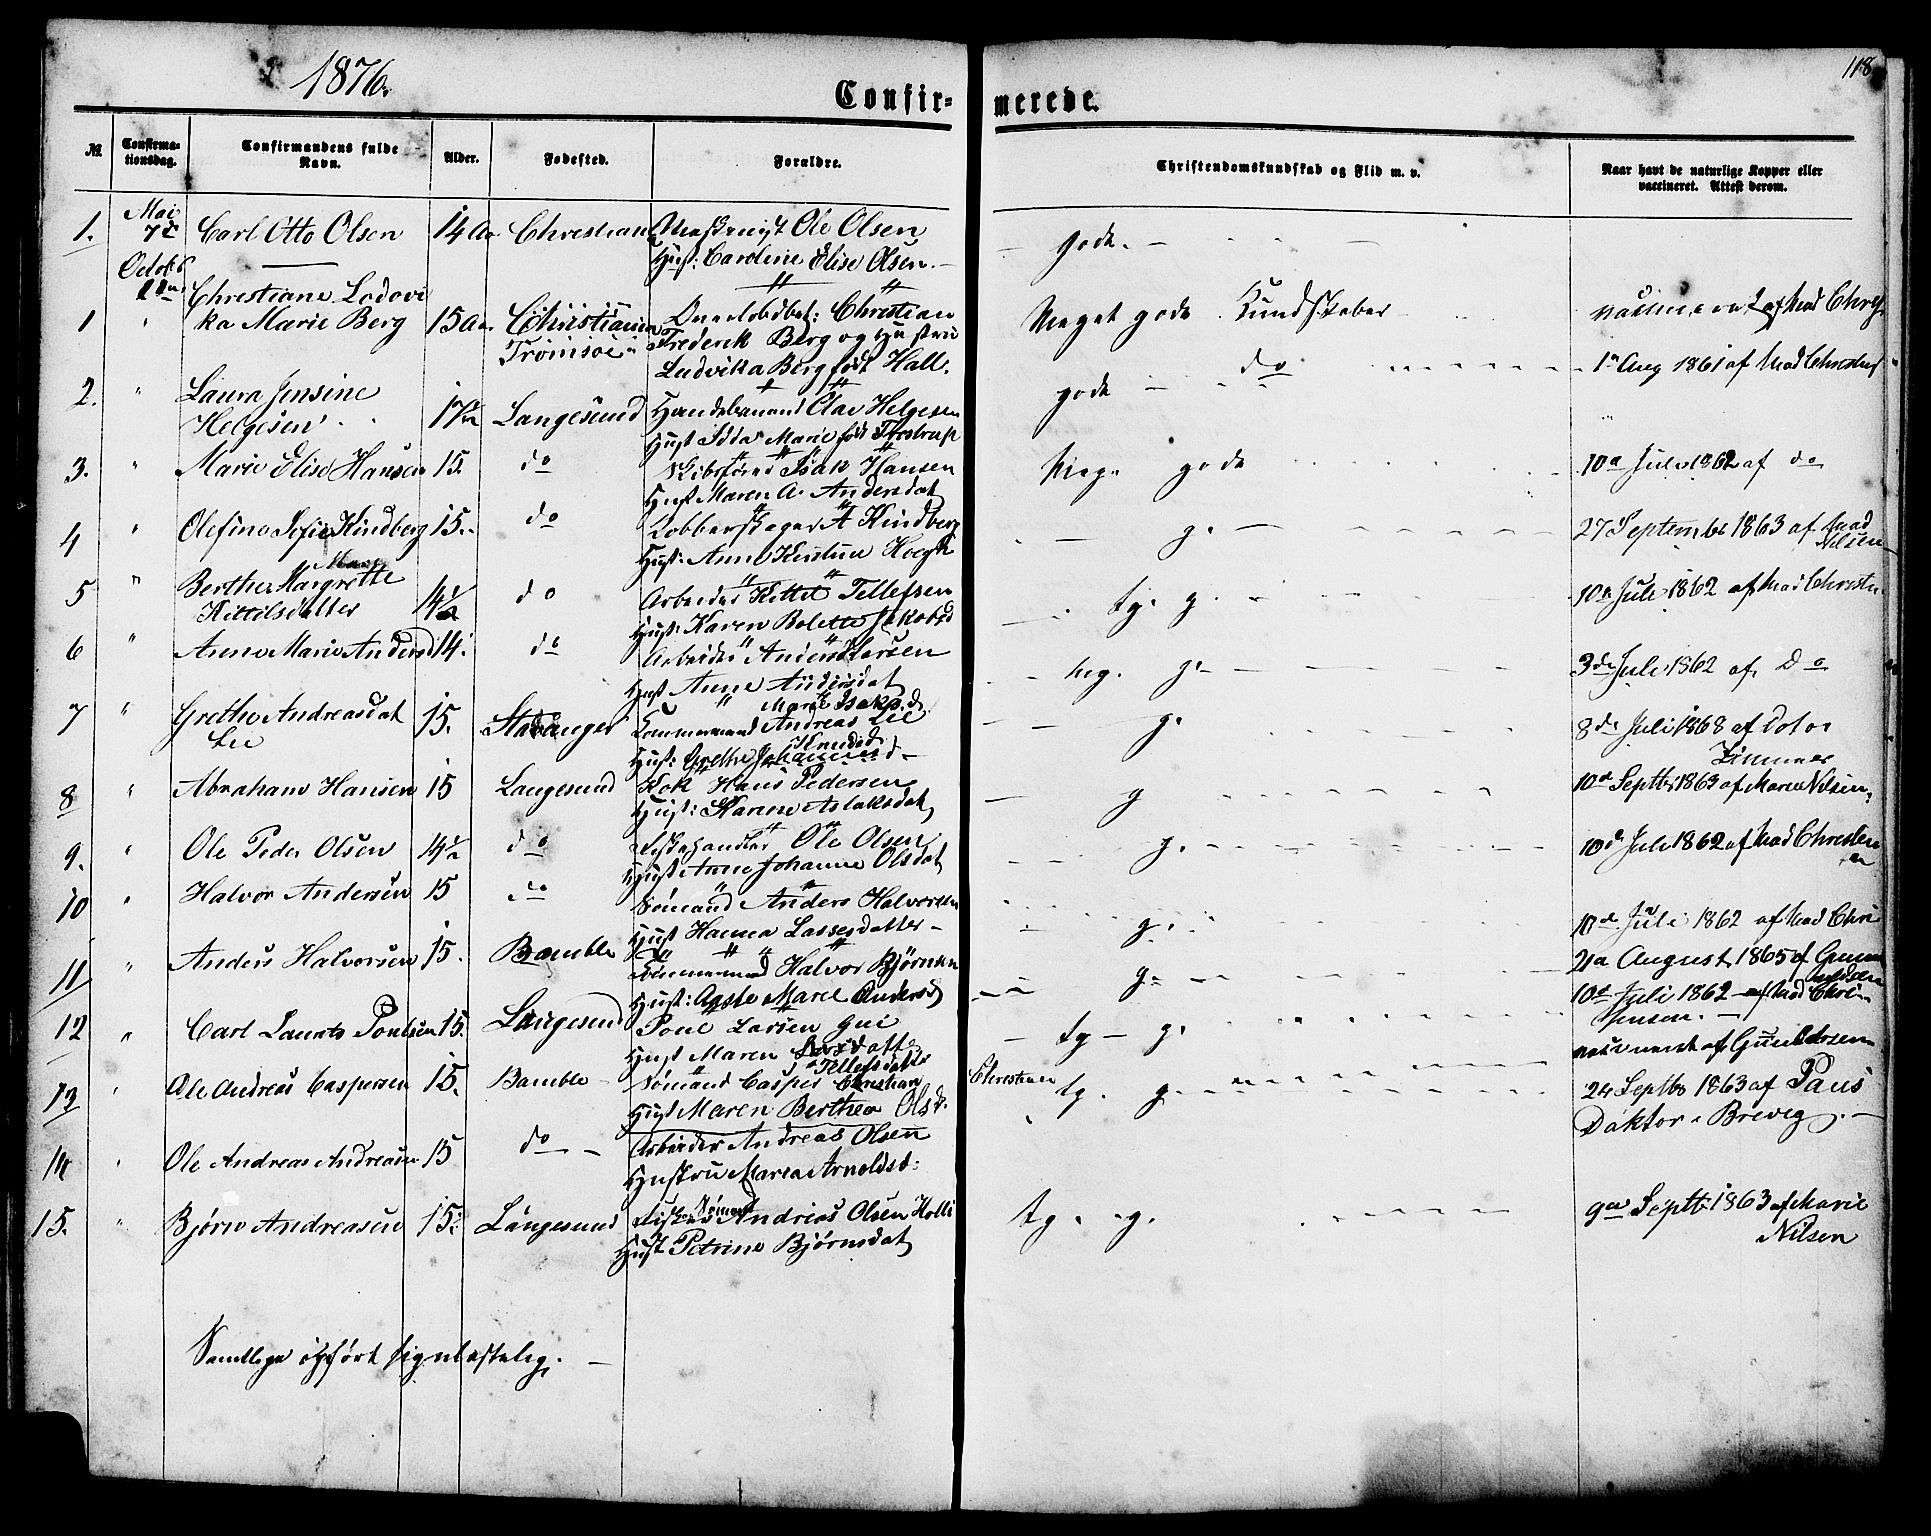 1876.
118
Confir- merede.
№
Confirma-
tionsdag.
Confirmandens fulde
Navn.
Alder.
Fødested.
Forældre.
Christendomskundskab og Flid m. v.
Naar havt de naturlige Kopper eller
vaccineret. Attest derom.
1. Mai 7de Carl Otto Olsen 14 Aar Christiania Ole Olsen
Hust: Caroline Elise Olsen.
gode.
October
1 Christiane Lodovi
ka Marie Berg 15 Aar Christiania
Tromsøe
Christian
Frederik Berg og Hustru
Ludvika Berg født Hall.
Meget gode Kundskaber
vaccineret af Mad Chrest
2. " Laura Jensine
Helgesen 17 Langesund Handelsmand Olav Helgesen
Hust Idda Marie født Thrstrup
gode do
1n Aug 1861 af Mad Christens
3. " Marie Elise Hansen 15. do Skibsfører Isak Hansen
Hust Maren A. Andersdat
Meg. gode
10de Juli 1862 af do
4 " Olefine Sofie Kindberg 15. do A Kindberg
Hust: Anne Kirstine Hoegh
g.
27 September 1863 af Mad
Nilsen
5 " Berthe Margrette
Kittilsdatter 14 1/2 do Arbeider Kittil Tellefsen
Hust: Karen Bolette Jakobsd
tg. g.
10de Juli 1862 af Mad Christn
6 " Anne Marie Andersd 14. do Arbeider Anders Larsen
Hust Anne Andersdat
meg. g.
3de Juli 1862 af Do
7 " Grethe Andreasdat
Lie 15. Stavanger Marie Isaks.d
Tømmermand Andreas Lie
Knudsd
Hust: Grethe Johannesd
g.
8de Juli 1868 af Dotor
Zimmer
8 " Abraham Hansen 15 Langesund Kok Hans Pedersen
Hust: Karen Aslaksdat
g
10de Septbr 1863 af Maren Nilsen
9. " Ole Peder Olsen 14 1/2 do Fiskehandler Ole Olsen
Hust Anne Johanne Olsdat
g.
10de Juli 1862 af Mad Christen
en
10 " Halvor Andersen 15 do Sømand Anders Halvorsen
Hust Hanna Lassesdatter
g.
10de Juli 1862 af Mad Chri
11 " Anders Halvorsen 15. Bamble Tømmermand Halvor Bjørnsen
Hust: Aaste Marie Andersd
g.
21de August 1865 af Gunn
uldsen
12 " Carl Laurits Poulsen 15. Langesund Poul Larsen
Hust Maren Larsdatter
tg g.
10de Juli 1862 af Mad Chri
stensen.
13 " Ole Andreas Caspersen 15. Bamble Tellefsdatter
Sømand Casper Christian Christian
Hust Maren Berthea Olsd.
tg. g.
vaccineret af Gundersen
14 " Ole Andreas Andreasen 15 do Arbeider Andreas Olsen
Hustru Maria Arnoldsd:
24 Septbr 1863 af Paus
Doktor i Brevig.
15. " Bjørn Andreasen 15. Langesund Sømand
Fisker Andreas Olsen Holli
Hust Petrine Bjørnsdat
tg. g.
9de Septbr 1863 af Marie
Nilsen
Samtlige opført